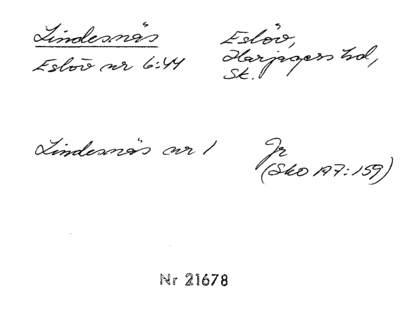 Lindesnäs
Eslöv nr 6:44
Eslöv,
Harjagers hd,
Sk.
Lindesnäs nr 1
Jr
(Sko 197:159)
Nr 21678